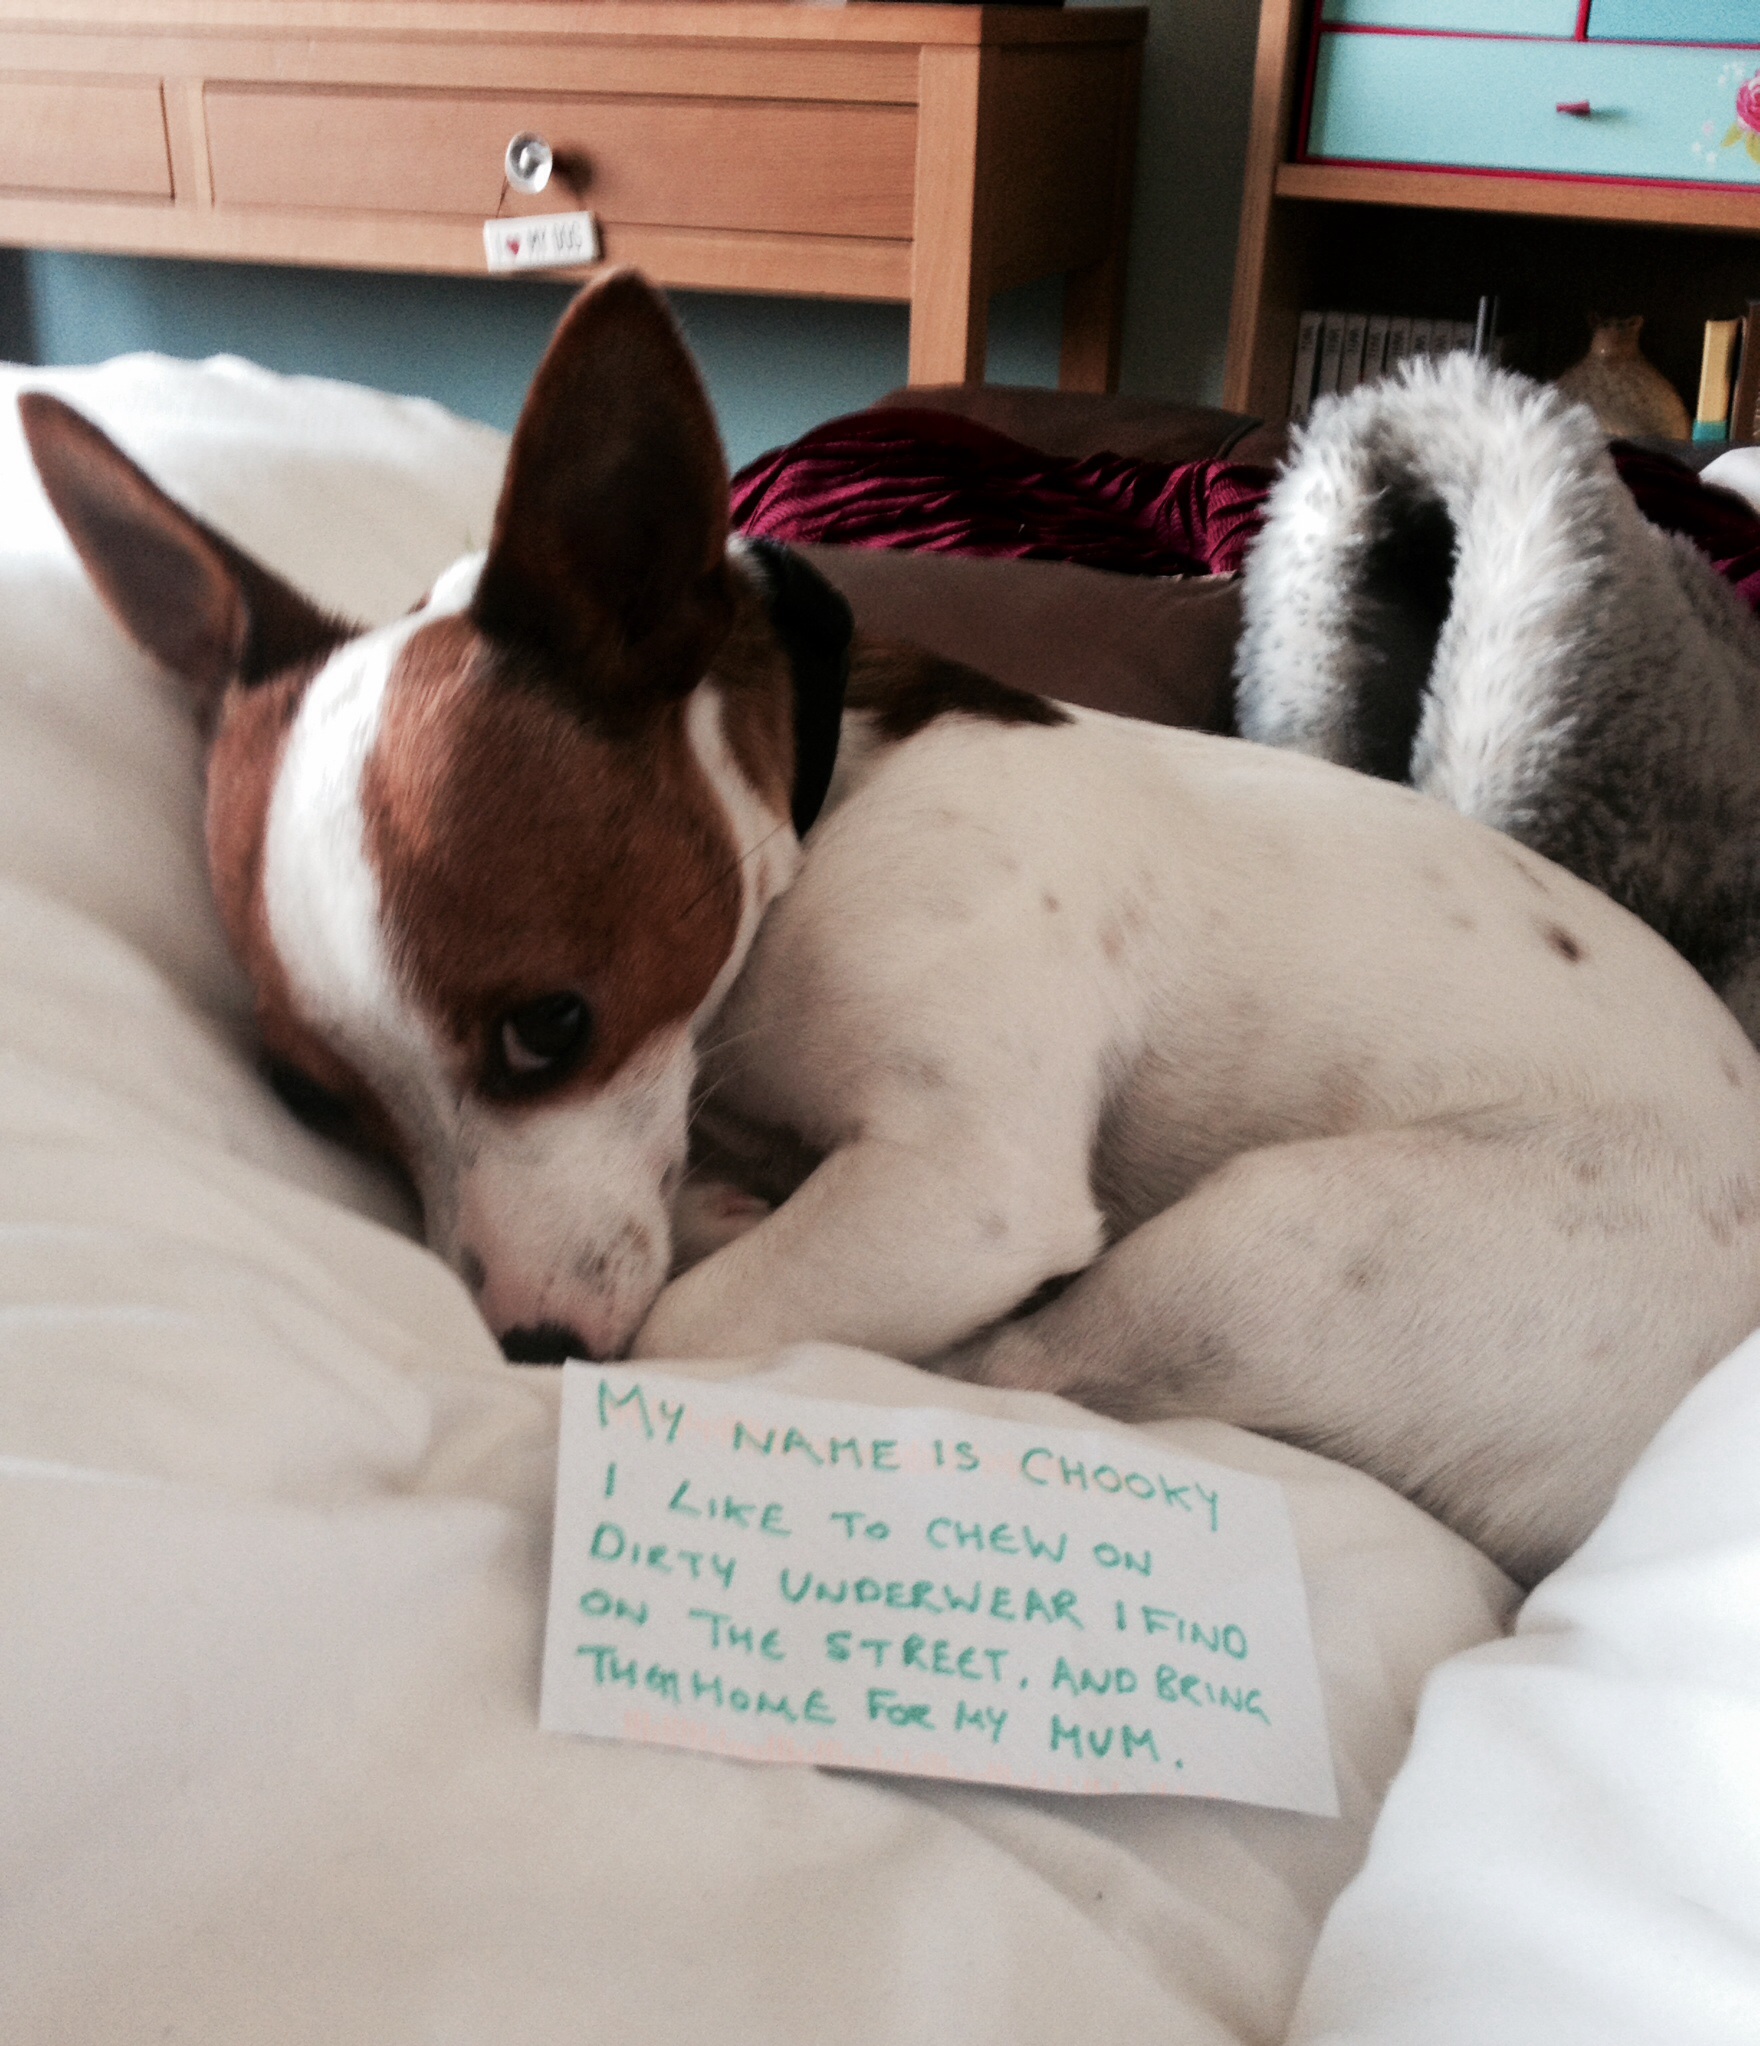 I ♥ MY DOG
MY NAME IS CHOOKY
I LIKE TO CHEW ON
DIRTY UNDERWEAR I FIND
ON THE STREET, AND BRING
THEM HOME FOR MY MUM.